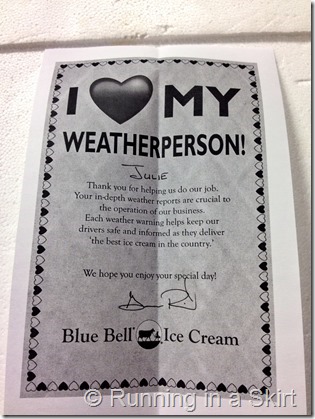 I MY
WEATHERPERSON!
JULIE
Thank you for helping us do our job.
Your in-depth weather reports are crucial to
the operation of our business.
Each weather warning helps keep our
drivers safe and informed as they deliver
'the best ice cream in the country.'
We hope you enjoy your special day!
Blue Bell® Ice Cream
© Running in a Skirt